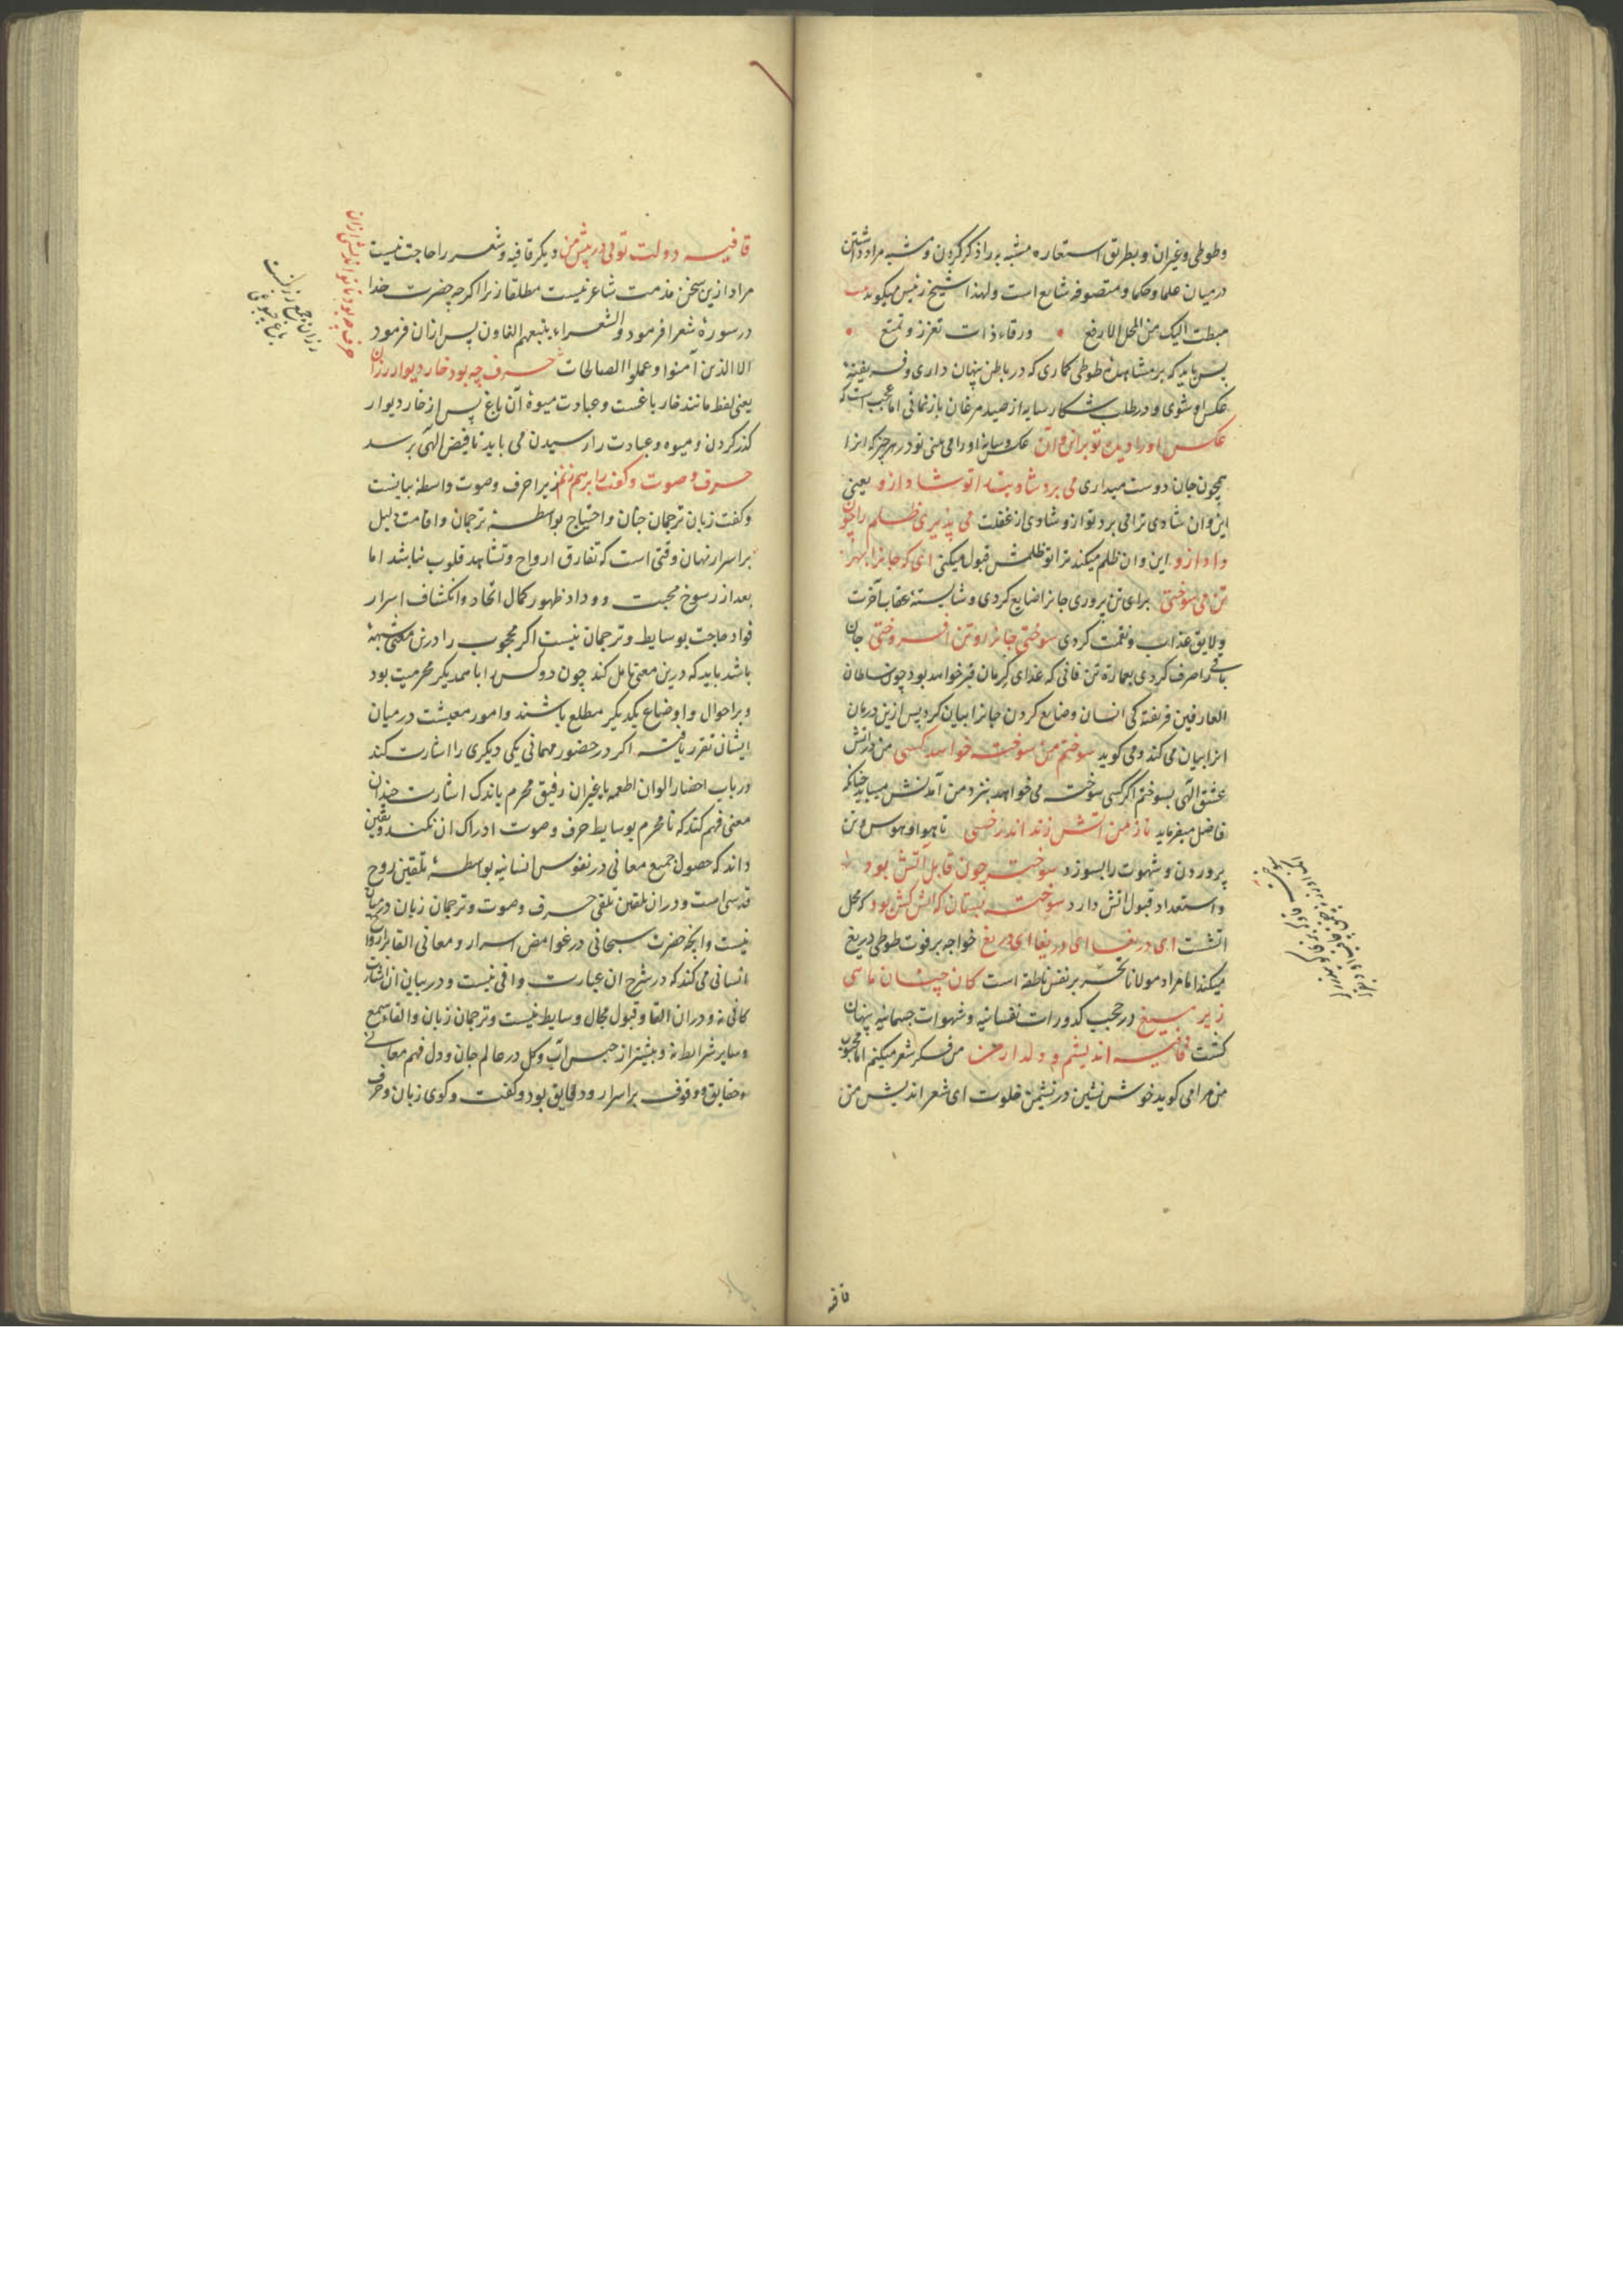 وطوطی وغیران وبطریق استعاره مشبه به را ذکر کردن ومشبه مراد داشتن
درمیان علما وحکما ومتصوفه شایع است ولهذا شیخ رئیس میکوید
هبطت الیک من المحل الارفع ورقاء ذات تعزز وتمنع
پس باید که بر مشاهدهٔ طوطی کماری که در باطن پنهان داری وفریفتهٔ
عکس او شوی ودر طلب شکار سایه از صید مرغان باز نمانی اما عجب است که
عکس او را دیده تو بر این وآن عکس وسایهٔ او را می بینی تو در هر چیز که انرا
همچون جان دوست میداری می برد شادیت را تو شاد ازو یعنی
این وان شادی ترا می برد وتو ازو شادی از غفلت می پذیری ظلم را چون
داد ازو این وان ظلم میکند ترا تو ظلمش قبول میکنی ای که جانرا بهر
تن می سوختی برای تن پروری جانرا ضایع کردی وشایستهٔ عقاب آخرت
ولایق عذاب ونقمت کردی سوختی جانرا وتن افروختی جان
باقی را صرف کردی بعمارة تن فانی که غذای کرمان قبر خواهد بود چون سلطان
العارفین فریفته کی انسان وضایع کردن جانرا بیان کرد پس ازین درمان
انرا بیان می کند ومی کوید سوختم من سوخته خواهد کسی من در آتش
عشق الهی بسوختم اکر کسی سوخته می خواهد بنزد من آمدنش میباید چنانکه
فاضل میفرماید تا ز من آتش زند اندر خسی تا هوا وهوس وتن
پروردن وشهوت را بسوزد سوخته چون قابل آتش بود
واستعداد قبول اتش دارد سوخته بستان که آتش کش بود که محل
اتشت ای دریغا ای دریغا ای دریغ خواجه بر فوت طوطی دریغ
میکند اما مراد مولانا تحسر بر نفس ناطقه است کان چنان ماهی
زیر میغ در حجب کدورات نفسانیه وشهوات جسمانیه پنهان
کشت قافیه اندیشم و دلدار من من فکر شعر میکنم اما محبوب
من مرا می کوید خوش نشین در نشیمن خلوت ای شعر اندیش من
قافیه
قافیه دولت تویی در پیش من دیکر قافیه وشعر را حاجت نیست
مراد ازین سخن مذمت شاعر نیست مطلقا زیرا اکرچه حضرت خدا
در سورهٔ شعرا فرمود والشعراء یتبعهم الغاون پس ازان فرمود
الا الذین آمنوا وعملوا الصالحات حرف چه بود خار دیوار رزان
یعنی لفظ مانند خار باغست وعبادت میوهٔ آن باغ پس از خار دیوار
کذر کردن ومیوه وعبادت را رسیدن می باید تا فیض الهی برسد
حرف وصوت وکفت را برهم زنم زیرا حرف وصوت واسطهٔ بیانست
وکفت زبان ترجمان جنان واحتیاج بواسطهٔ ترجمان واقامت دلیل
بر اسرار نهان وقتی است که تفارق ارواح وتشاهد قلوب نباشد اما
بعد از رسوخ محبت ووداد وظهور کمال اتحاد وانکشاف اسرار
فواد حاجت بوسایط وترجمان نیست اکر محجوب را درین معنی شبهه
باشد باید که درین معنی تامل کند چون دو کس را با همدیکر محرمیت بود
وبر احوال واوضاع یکدیکر مطلع باشند وامور معیشت درمیان
ایشان تقرر یافته اکر در حضور مهمانی یکی دیکری را اشارت کند
در باب احضار الوان اطعمه یا غیران رفیق محرم باندک اشارت چندان
معنی فهم کند که نامحرم بوسایط حرف وصوت ادراک ان نکند ویقین
داند که حصول جمیع معانی در نفوس انسانیه بواسطهٔ تلقین روح
قدسی است ودران تلقین تلقی حرف وصوت وترجمان زبان درمیان
نیست وانچه حضرت سبحانی در غوامض اسرار ومعانی القا بر ارواح
انسانی می کند که در شرح ان عبارت وافی نیست ودر بیان ان اشارت
کافی نه ودران القا وقبول مجال وسایط نیست وترجمان زبان والقاء سمع
وسایر شرایط نه وبیشتر از حبس آب وکل در عالم جان ودل فهم معانی
حقایق ووقوف بر اسرار ودقایق بود وکفت وکوی زبان وحرف
حرف چه بود تا تو اندیشی ازان
رزان جمع رز است
باغ